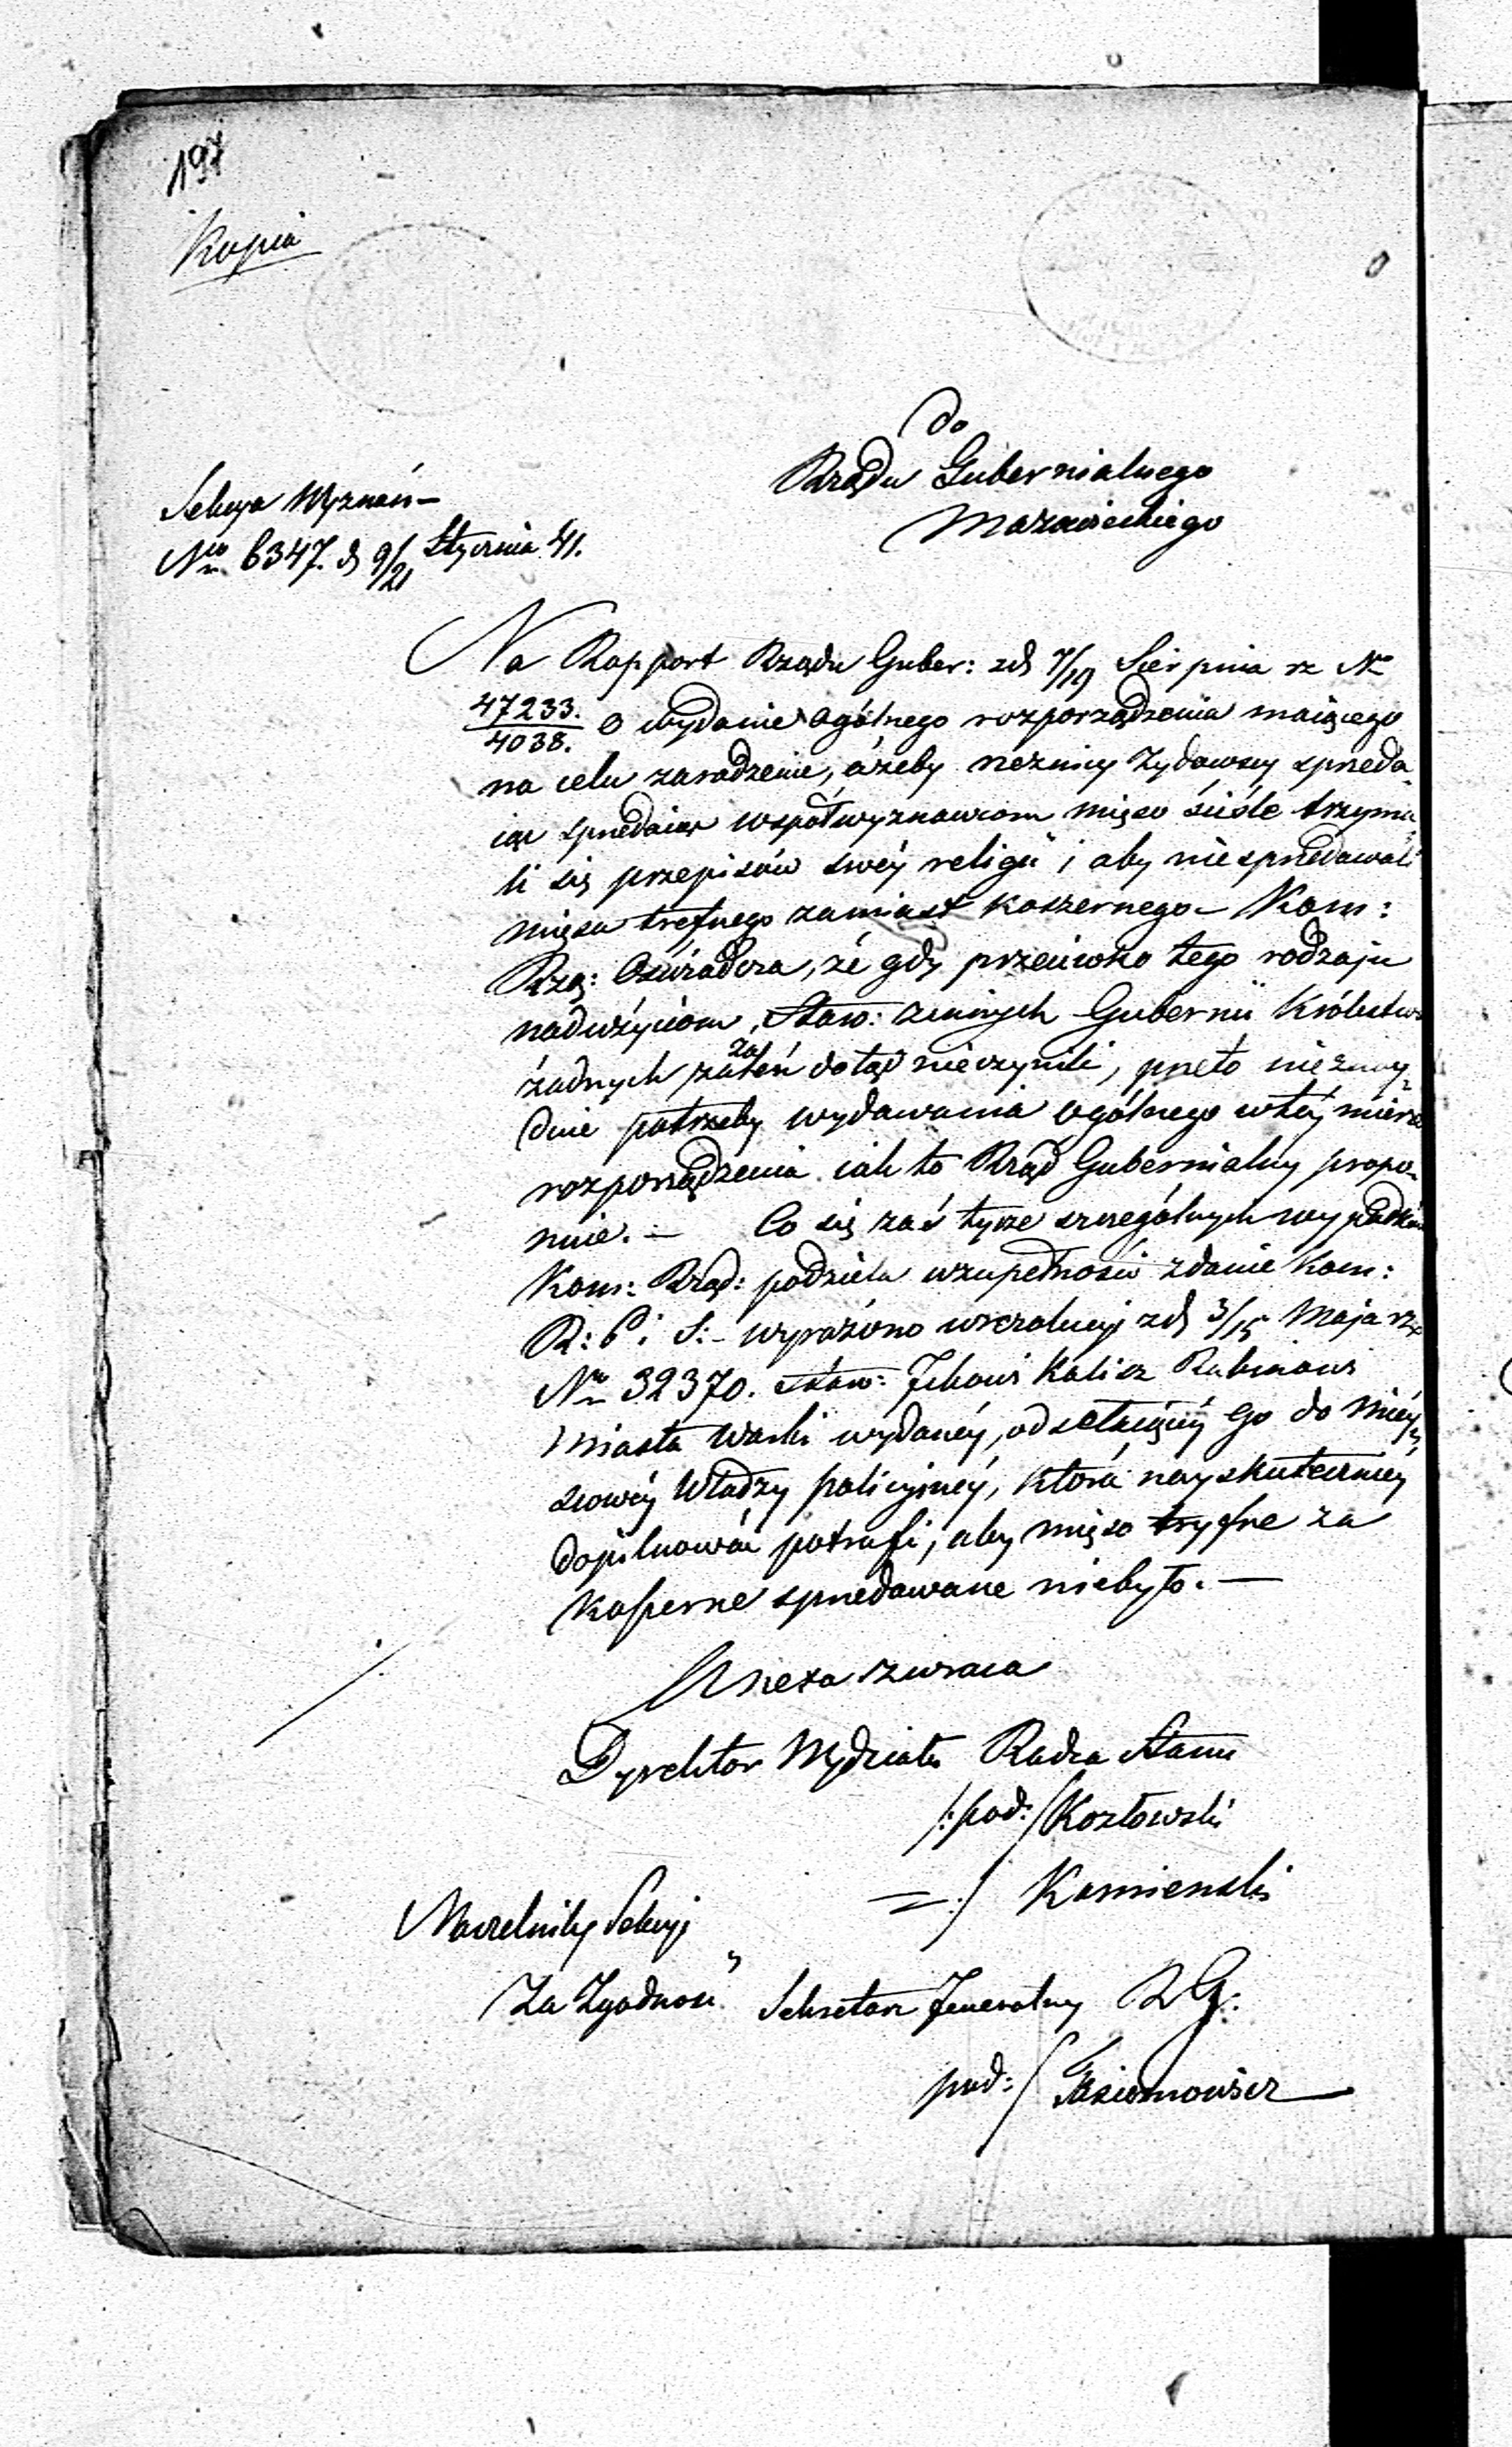 197
Kopia
Do
Rządu Gubernialnego
Mazowieckiego
Sekcya Wyznań –
Nro 6347. d 9/21 Stycznia 41.
Na Rapport Rządu Guber: z d 7/19 Sierpnia rz No
47233./4038. o wydanie ogólnego rozporządzenia maiącego
na celu zaradzenie, ażeby rzeźnicy Żydowscy sprzeda-
iąc sprzedaiąc współwyznawcom mięso ściśle trzyma-
li się przepisów swéj religii i aby niesprzedawali
mięsa trefnego zamiast koszernego – Kom:
Rzą: Oświadcza, że gdy przeciwko tego rodzaju
nadużyciom, Staw: z innych Gubernii Królestwa
żadnych zażaleń dotąd nieczynili, przeto nieznay-
duie potrzeby wydawania ogólnego w téj mierze
rozporządzenia iak to Rząd Gubernialny propo-
nuie. – Co się zaś tycze szczególnych wypadków
Kom: Rząd: podziela wzupełności zdanie Kom:
R: P i S: – wyrażono w rezolucyi z d 3/15 Maja rz
Nro 32370. Staw: Jckowi Kalisz Rabinowi
miasta Warki wydanéy, odsełaiącéy go do Miéy-
scowéy Władzy policyjnéy, która nayskuteczniéy
dopilnować potrafi, aby mięso tryfne za
koszerne sprzedawane niebyło. –
Anexa zwraca
Dyrektor Wydziału Radca Stanu
/:pod:/ Kozłowski
Naczelnik Sekcyi
=:/ Kamienski
Za Zgodność Sekretarz Jeneralny R G:
pod:/